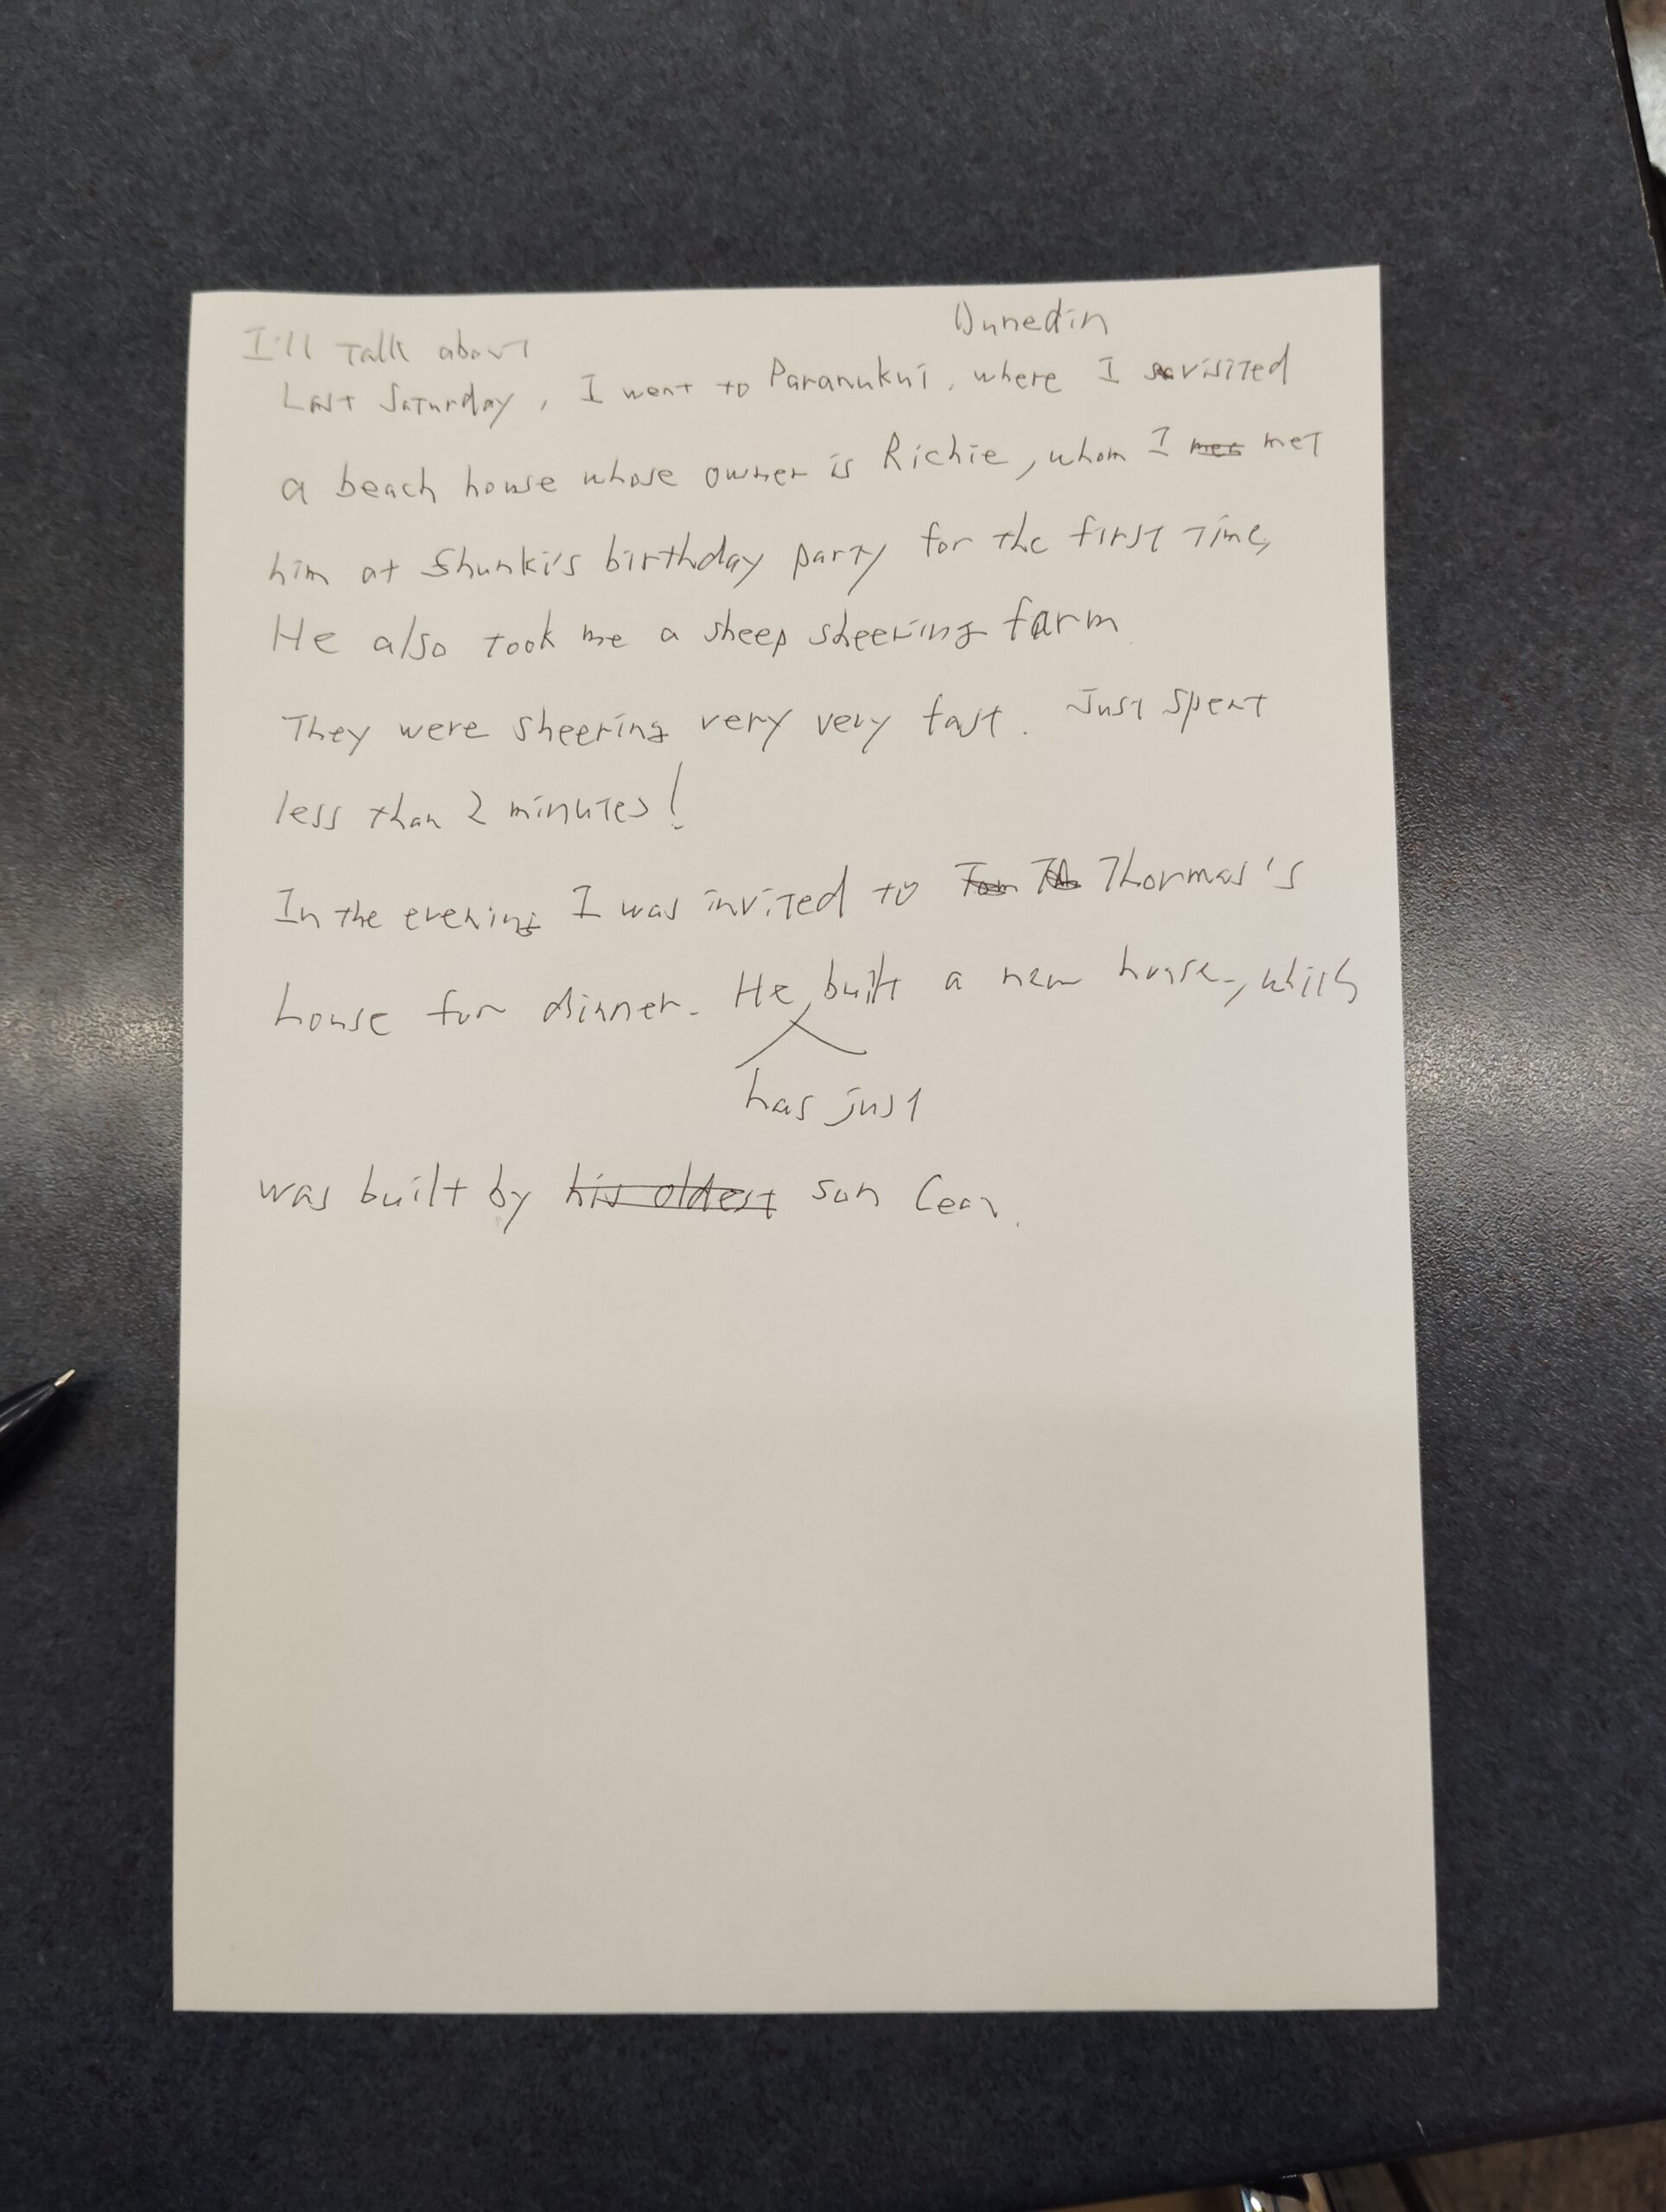 Dunedin
I'll Talk about
Last Saturday, I went to Paranukui, where I visited
a beach house whose owner is Richie, whom I met met
him at Shunki's birthday party for the first time,
He also took me a sheep sheering farm
They were sheering very very fast. Just spent
less than 2 minutes!
In the evening I was invited to Tom Th Thormas's
house for dinner. He built a new house, which
has just
was built by his oldest son